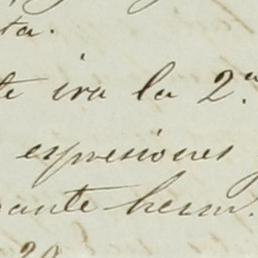 ta.
te ira la 2.a
espresiones
ante herm.
20